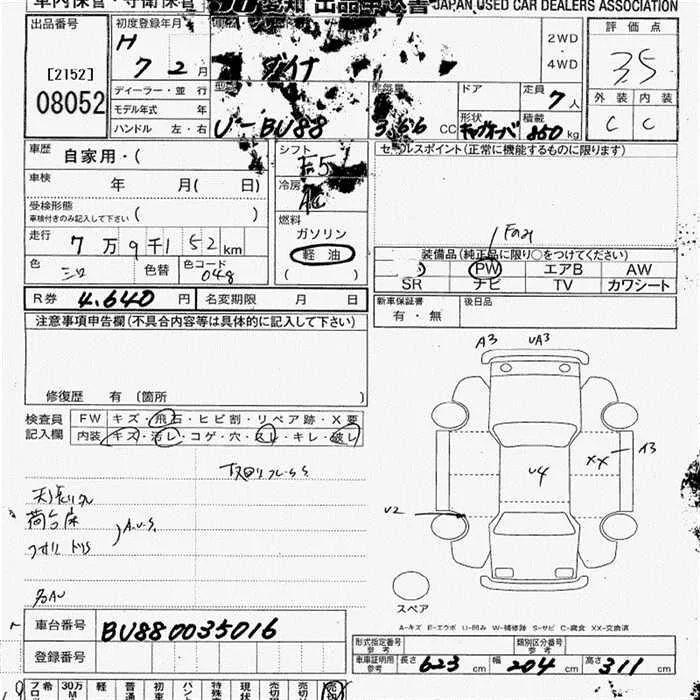 車内保管・守衛保管 愛知 出品申込書 JAPAN USED CAR DEALERS ASSOCIATION
出品番号 初度登録年月 2WD 評価点
[2152] H 7 2 月 ダイナ 4WD 3.5
08052 ディーラー・並行 型式 排気量 ドア 定員 7 人 外装 内装
モデル年式 年 形状 積載 C C
ハンドル 左・右 U-BU88 3.66 CC キャブオーバ 850 kg
車歴 自家用・( シフト F5 セールスポイント(正常に機能するものに限ります)
車検 年 月( 日) 冷房 AC
受検形態 ( )
車検付きのみ記入して下さい 燃料
走行 7 万 9 千 1 52 km ガソリン
色 シロ 色替 色コード 048 軽油 ( )
装備品(純正品に限り○をつけてください)
PW エアB AW
SR ナビ TV カワシート
R券 4.640 円 名変期限 月 日 新車保証書 後日品
有・無
注意事項申告欄(不具合内容等は具体的に記入して下さい)
A3 UA3
修復歴 有 〔箇所 〕
検査員 FW キズ・飛石・ヒビ割・リペア跡・X要
記入欄 内装 キズ・汚レ・コゲ・穴・スレ・キレ・破レ
U4 XX A3
U2
荷台床
A.U.S.
スペア
A-キズ E-エクボ U-凹み W-補修跡 S-サビ C-腐食 XX-交換済
車台番号 BU880035016
登録番号
形式指定番号 参考 類別区分番号 参考
車庫証明用 参考 長さ 623 cm 幅 204 cm 高さ 311 cm
希 30万 軽 普通 初 ハン 特殊 現状 売切